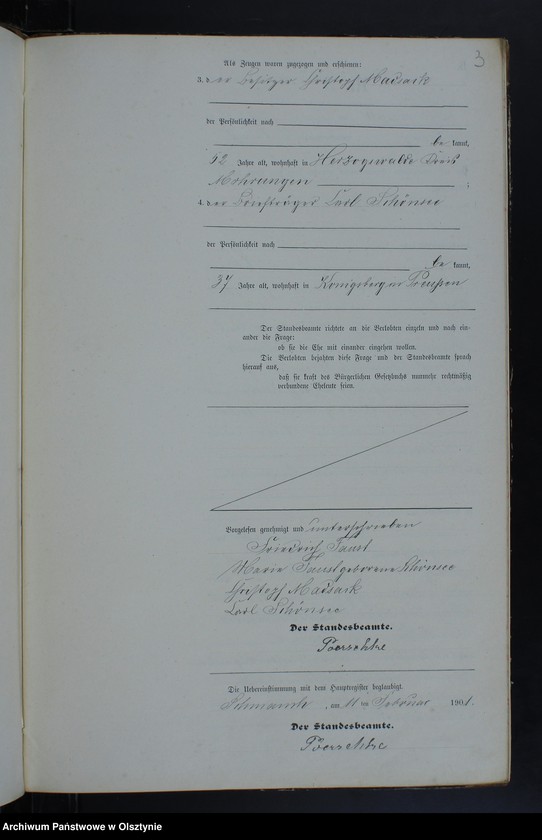 3
Als Zeugen waren zugezogen und erschienen:
3. der Besitzer Christoph Maisack
der Persönlichkeit nach
be kannt,
62 Jahre alt, wohnhaft in Herzogswalde Kreis
Mohrungen ;
4. der Briefträger Carl Schönsee
der Persönlichkeit nach
be kannt,
37 Jahre alt, wohnhaft in Königsberg in Preußen
Der Standesbeamte richtete an die Verlobten einzeln und nach ein-
ander die Frage:
ob sie die Ehe mit einander eingehen wollen.
Die Verlobten bejahten diese Frage und der Standesbeamte sprach
hierauf aus,
daß sie kraft des Bürgerlichen Gesetzbuchs nunmehr rechtmäßig
verbundene Eheleute seien.
Vorgelesen genehmigt und unterschrieben
Friedrich Faust
Marie Faust geborene Schönsee
Christoph Maisack
Carl Schönsee
Der Standesbeamte.
Die Uebereinstimmung mit dem Hauptregister beglaubigt.
am 11 ten Februar 1901.
Der Standesbeamte.
Archiwum Państwowe w Olsztynie